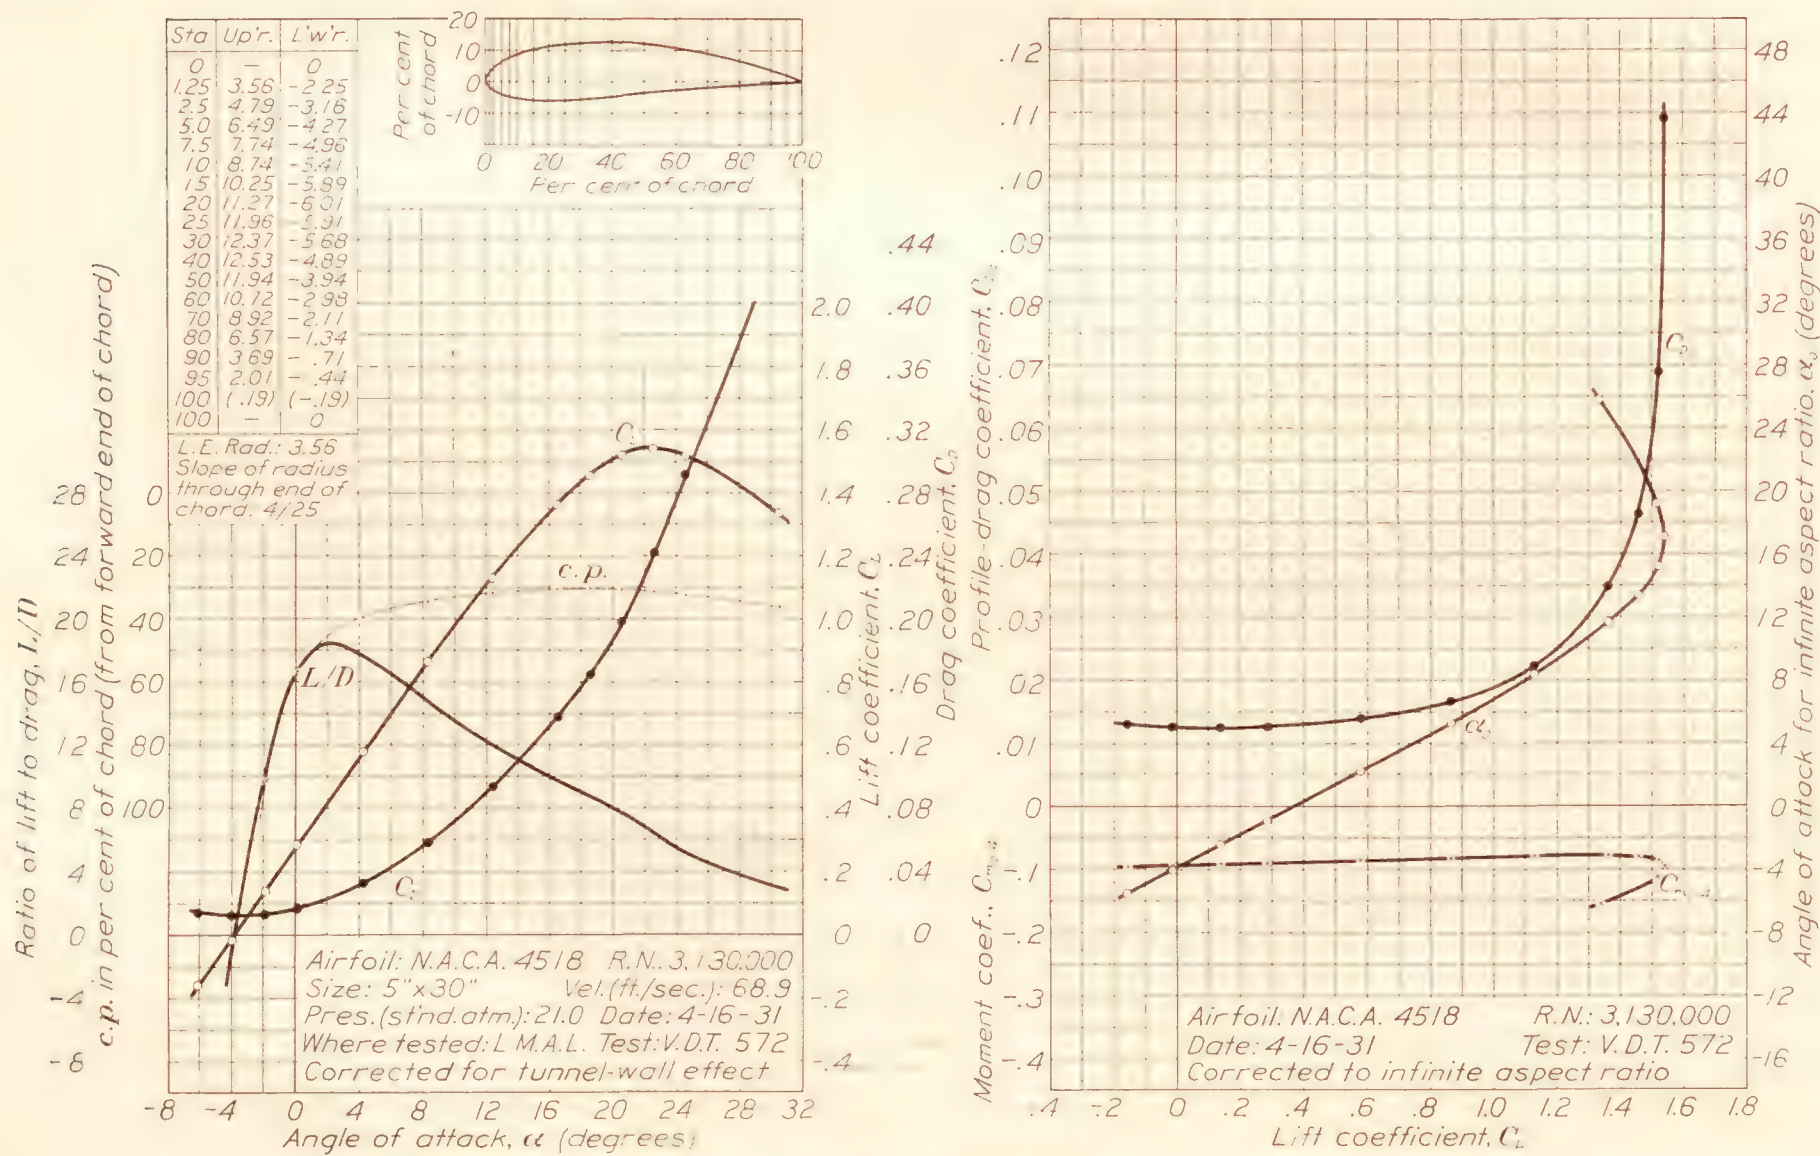 Sta Up'r. L'w'r.
0 — 0
1.25 3.56 -2.25
2.5 4.79 -3.16
5.0 6.49 -4.27
7.5 7.74 -4.96
10 8.74 -5.41
15 10.25 -5.89
20 11.27 -6.01
25 11.96 -5.91
30 12.37 -5.68
40 12.53 -4.89
50 11.94 -3.94
60 10.72 -2.98
70 8.92 -2.11
80 6.57 -1.34
90 3.69 - .71
95 2.01 - .44
100 (.19) (-.19)
100 — 0
L.E. Rad.: 3.56
Slope of radius
through end of
chord: 4/25
Per cent
of chord
20
10
0
-10
0 20 40 60 80 100
Per cent of chord
Ratio of lift to drag, L/D
28
24
20
16
12
8
4
0
-4
-8
c.p. in per cent of chord (from forward end of chord)
0
20
40
60
80
100
C_L
c.p.
L/D
Lift coefficient, C_L
2.0
1.8
1.6
1.4
1.2
1.0
.8
.6
.4
.2
0
-.2
-.4
Drag coefficient, C_D
.44
.40
.36
.32
.28
.24
.20
.16
.12
.08
.04
0
Airfoil: N.A.C.A. 4518 R.N.: 3,130,000
Size: 5"x30" Vel.(ft./sec.): 68.9
Pres.(st'nd.atm.): 21.0 Date: 4-16-31
Where tested: L.M.A.L. Test: V.D.T. 572
Corrected for tunnel-wall effect
-8 -4 0 4 8 12 16 20 24 28 32
Angle of attack, α (degrees)
Profile-drag coefficient, C_D₀
.12
.11
.10
.09
.08
.07
.06
.05
.04
.03
.02
.01
0
Moment coef., C_m c/4
-.1
-.2
-.3
-.4
α₀
Angle of attack for infinite aspect ratio, α₀ (degrees)
48
44
40
36
32
28
24
20
16
12
8
4
0
-4
-8
-12
-16
Airfoil: N.A.C.A. 4518 R.N.: 3,130,000
Date: 4-16-31 Test: V.D.T. 572
Corrected to infinite aspect ratio
-.4 -.2 0 .2 .4 .6 .8 1.0 1.2 1.4 1.6 1.8
Lift coefficient, C_L